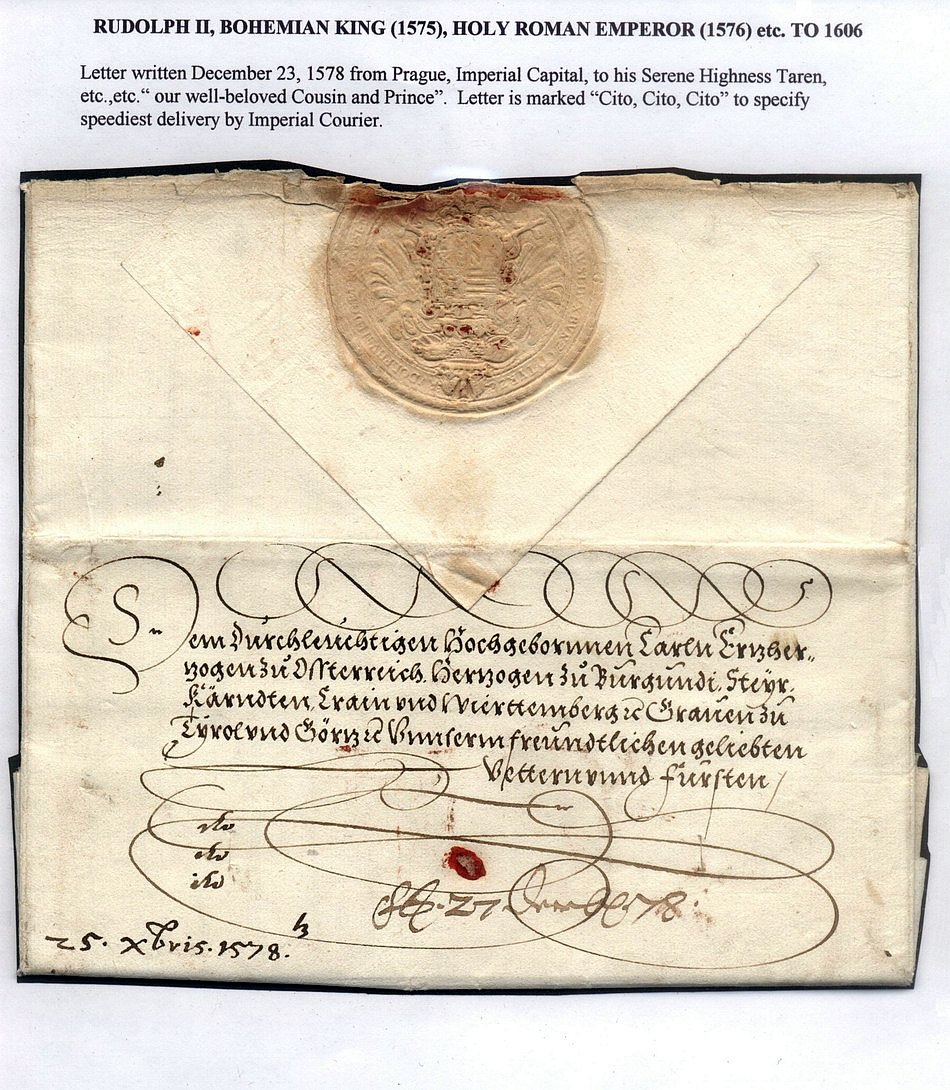 RUDOLPH II, BOHEMIAN KING (1575), HOLY ROMAN EMPEROR (1576) etc. TO 1606
Letter written December 23, 1578 from Prague, Imperial Capital, to his Serene Highness Taren,
etc.,etc.“ our well-beloved Cousin and Prince”. Letter is marked “Cito, Cito, Cito” to specify
speediest delivery by Imperial Courier.
Dem Durchleuchtigen Hochgebornnen Carln Ertzher„
zogen zu Osterreich, Hertzogen zu Burgundi, Steyr,
Kärndten, Crain vnd Wierttemberg ꝛc Grauen zu
Tyrol vnd Görtz ꝛc Vnnserm freundtlichen geliebten
Vettern vnnd Fürsten
Cito
Cito
Cito
25. Xbris. 1578.